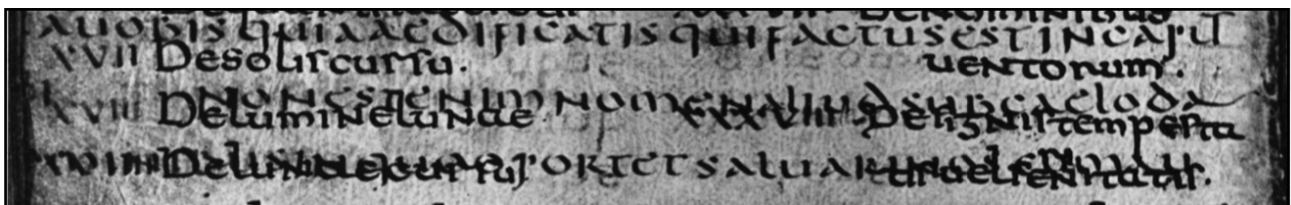 denominibus
AUOBIS QUIAAEDIFICATIS QUIFACTUSESTINCAPUT
XVII De solis cursu. uentorum.
NONESTENIM NOMEN ALIUD SUBCAELO DA
XVIII De lumine lunae XXXVIII De signis tempesta
ORTET SALUARI
XVIIII De lunae cursu tis uel serenitatis.